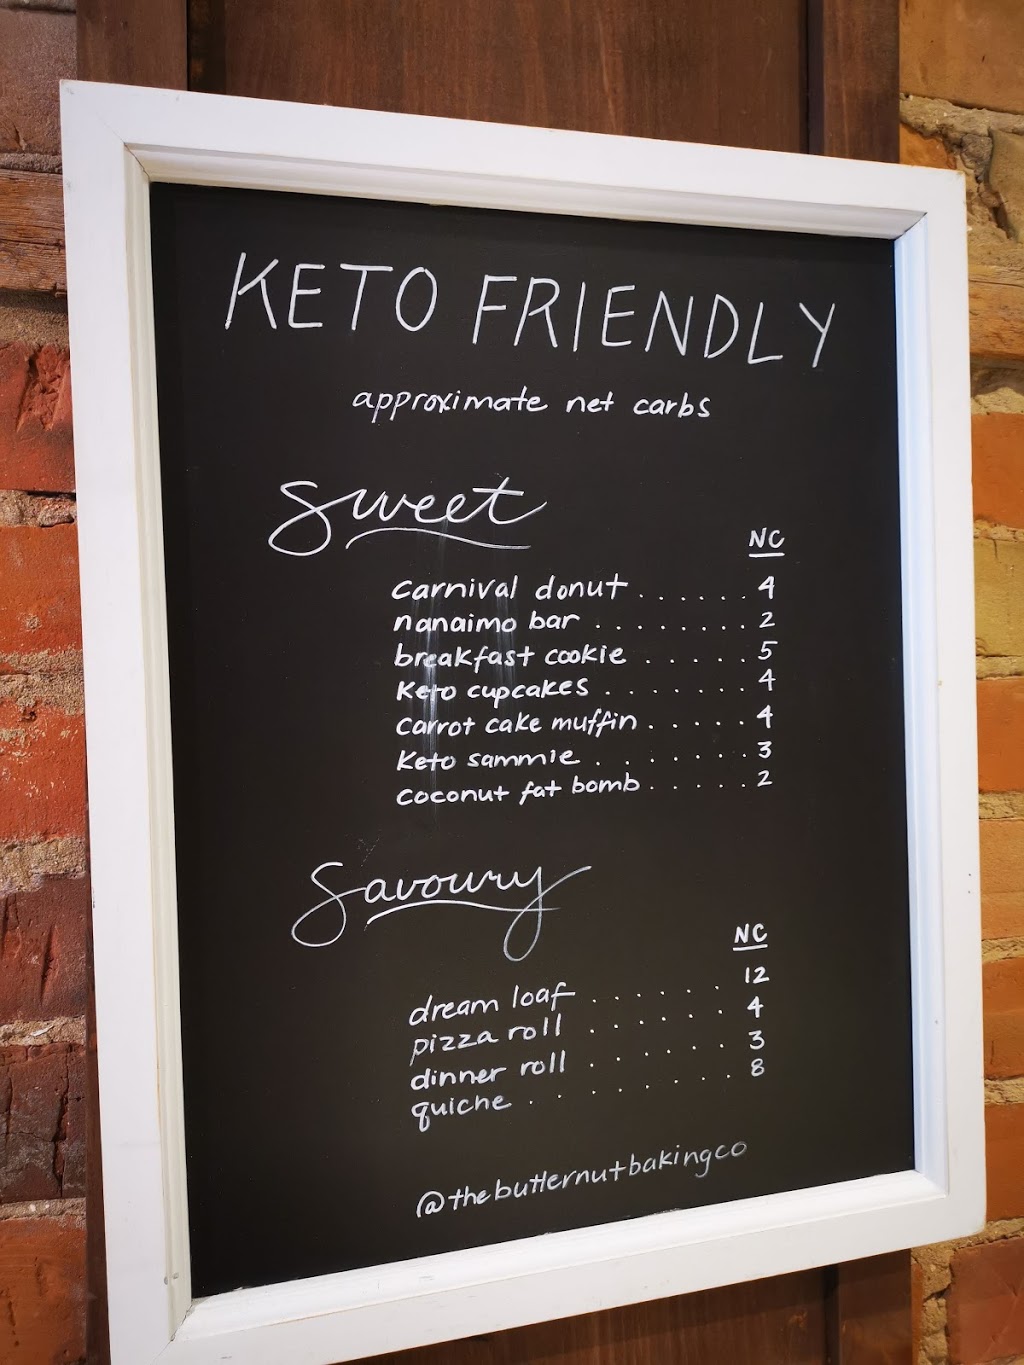 KETO FRIENDLY
approximate net carbs
Sweet
NC
carnival donut . . . . . . 4
nanaimo bar . . . . . . . . 2
breakfast cookie . . . . . 5
Keto cupcakes . . . . . . . 4
carrot cake muffin . . . . . 4
Keto sammie . . . . . . . . 3
coconut fat bomb . . . . . . 2
Savoury
NC
dream loaf . . . . . . 12
pizza roll . . . . . . 4
dinner roll . . . . . . 3
quiche . . . . . . . . 8
@thebutternutbakingco